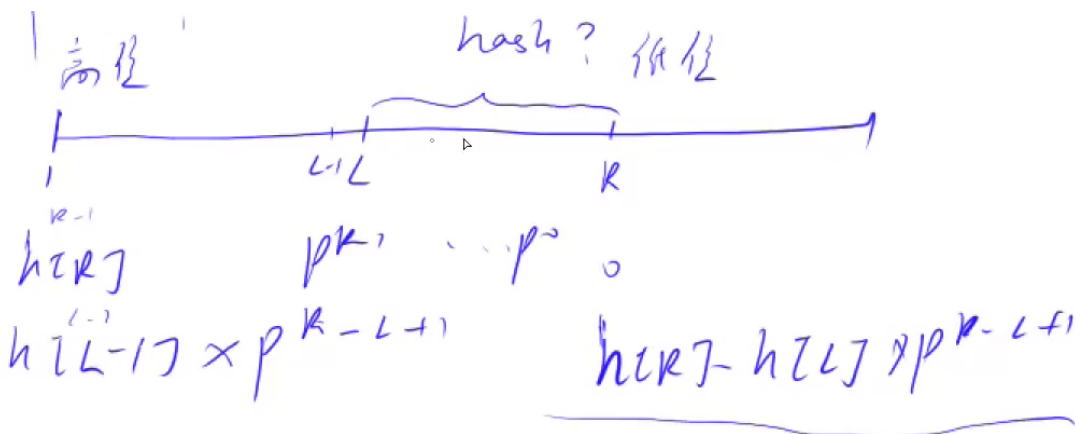 高位 hash? 低位
1 L-1 L R
R-1
h[R] p^{R-1} ... p^0 0
L-1
h[L-1] × p^{R-L+1} h[R] - h[L] × p^{R-L+1}